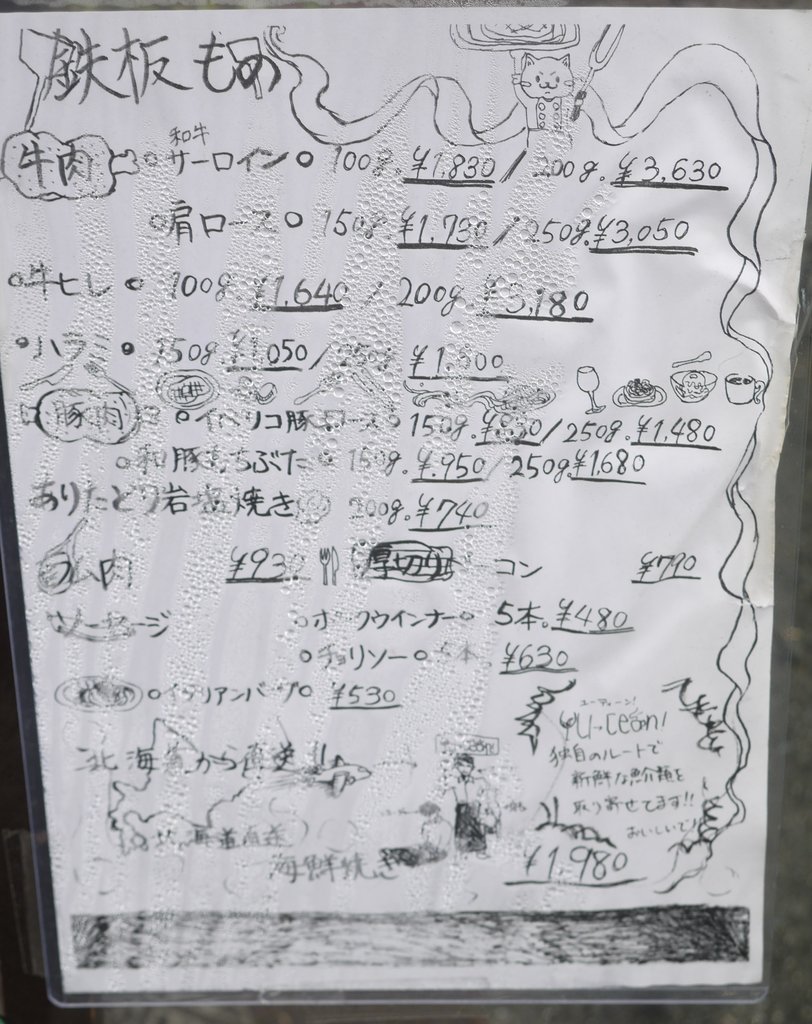 鉄板もの
和牛
牛肉 サーロイン 100g. ¥1,830 / 200g. ¥3,630
肩ロース 150g. ¥1,730 / 250g. ¥3,050
牛ヒレ 100g. ¥1,640 / 200g. ¥3,180
ハラミ 150g ¥1,050 / 250g ¥1,500
豚肉 イベリコ豚ロース 150g. / 250g. ¥1,480
和豚もちぶた 150g. ¥950 / 250g ¥1,680
ありたどり岩塩焼き 200g. ¥740
ラム肉 ¥930 厚切りベーコン ¥790
ソーセージ ポークウインナー 5本 ¥480
チョリソー 5本 ¥630
イタリアンバーグ ¥530
ユーディーン!
yu-dean!
北海道から直送!! 独自のルートで
新鮮な魚介類を
取り寄せてます!!
北海道直送 おいしいで!
海鮮焼き ¥1,980